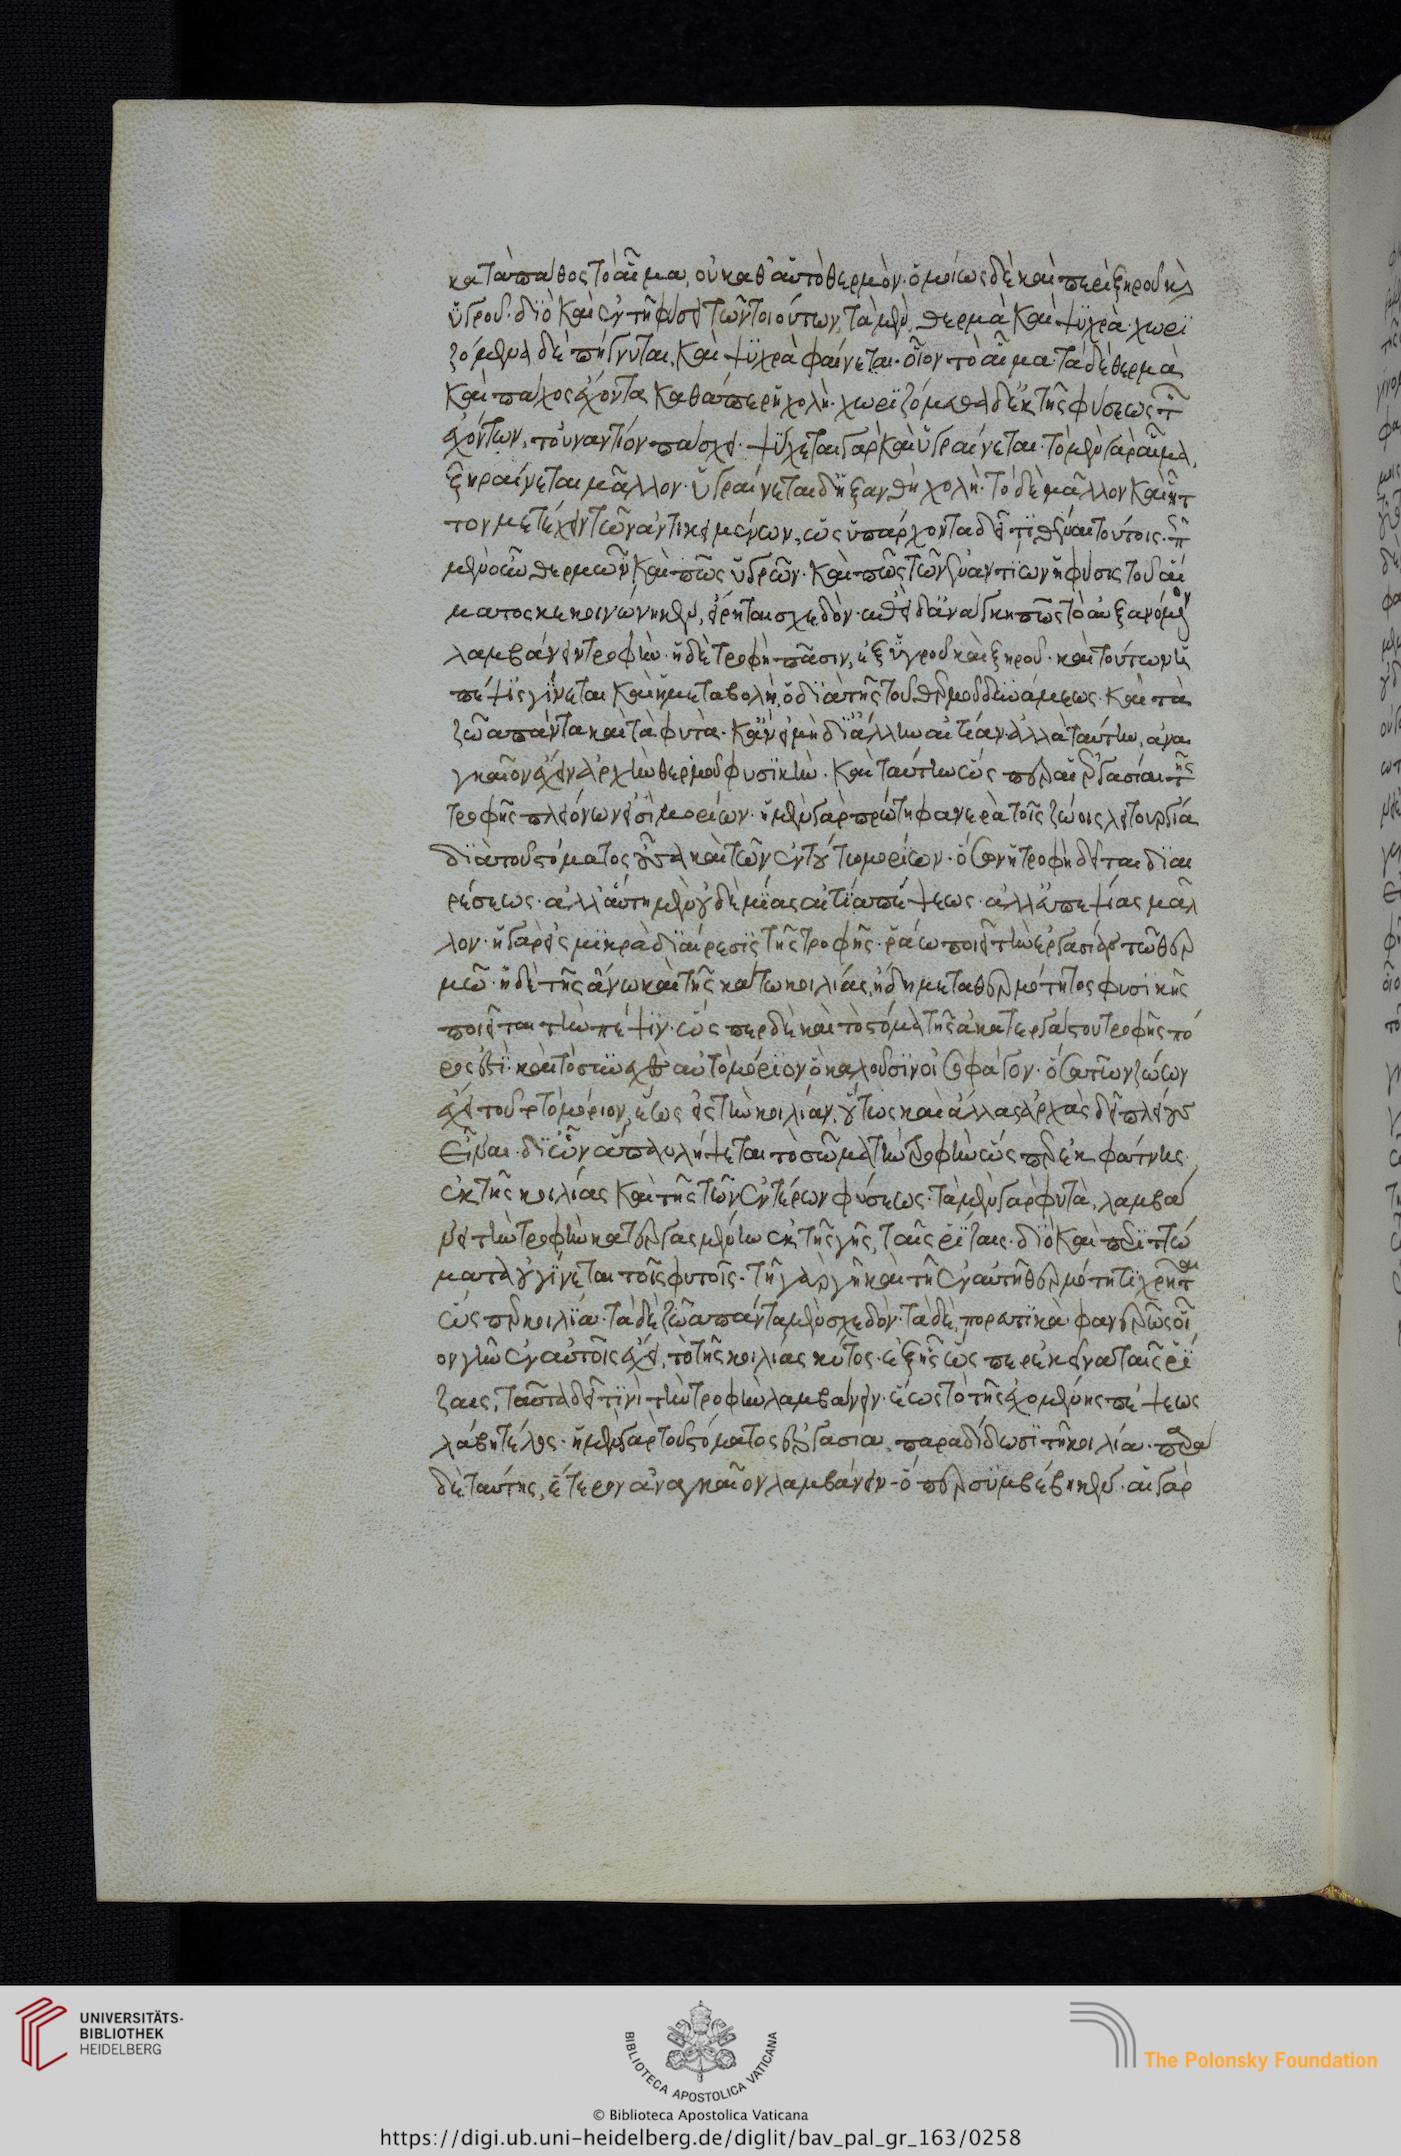 κατὰ πάθος τὸ αἷμα, οὐ καθ' αὑτὸ θερμόν· ὁμοίως δὲ καὶ περὶ ξηροῦ καὶ
ὑγροῦ· διὸ καὶ ἐν τῇ φύσει τῶν τοιούτων, τὰ μὲν θερμὰ καὶ ψυχρὰ· χωρι
ζόμενα δὲ πήγνυται, καὶ ψυχρὰ φαίνεται· οἷον τὸ αἷμα· τὰ δὲ θερμὰ
καὶ πάχος ἔχοντα καθάπερ ἡ χολή· χωριζόμενα δὲ ἐκ τῆς φύσεως τῶν
ἐχόντων, τοὐναντίον πάσχει· ψύχεται γὰρ καὶ ὑγραίνεται· τὸ μὲν γὰρ αἷμα,
ξηραίνεται μᾶλλον· ὑγραίνεται δ' ἡ ξανθὴ χολή· τὸ δὲ μᾶλλον καὶ ἧτ
τον μετέχειν τῶν ἀντικειμένων, ὡς ὑπάρχοντα δεῖ τιθέναι τούτοις· ὅτι
μὲν οὖν θερμῶν καὶ πῶς ὑγρῶν· καὶ πῶς τῶν ἐναντίων ἡ φύσις τοῦ αἵ
ματος κεκοινώνηκεν, εἴρηται σχεδόν· ἐπεὶ δ' ἀνάγκη πᾶν τὸ αὐξανόμενον
λαμβάνειν τροφήν· ἡ δὲ τροφὴ πᾶσιν, ἐξ ὑγροῦ καὶ ξηροῦ· καὶ τούτων ἡ
πέψις γίνεται καὶ ἡ μεταβολὴ, ὃ διὰ τῆς τοῦ θερμοῦ δυνάμεως· καὶ τὰ
ζῶα πάντα καὶ τὰ φυτὰ· κἂν εἰ μὴ δι' ἄλλην αἰτίαν ἀλλὰ ταύτην, ἀνα
γκαῖον ἔχειν ἀρχὴν θερμοῦ φυσικήν· καὶ ταύτην ὥσπερ αἱ ἐργασίαι τῆς
τροφῆς πλειόνων εἰσὶ μορίων· ἡ μὲν γὰρ πρώτη φανερὰ τοῖς ζώοις λειτουργία
διὰ τοῦ στόματος οὖσα καὶ τῶν ἐν τούτω μορίων· ὅσων ἡ τροφὴ δεῖται διαι
ρέσεως· ἀλλ' αὕτη μὲν οὐδεμίας αἰτία πέψεως· ἀλλ' εὐπεψίας μᾶλ
λον· ἡ γὰρ εἰς μικρὰ διαίρεσις τῆς τροφῆς· ῥάω ποιεῖ τὴν ἐργασίαν τῶ θερ
μῶ· ἡ δὲ τῆς ἄνω καὶ τῆς κάτω κοιλίας, ἤδη μετὰ θερμότητος φυσικῆς
ποιεῖται τὴν πέψιν· ὥσπερ δὲ καὶ τὸ στόμα τῆς ἀκατεργάστου τροφῆς πό
ρος ἐστὶ· καὶ τὸ συνεχὲς αὐτῶ μόριον ὃ καλοῦσιν οἰσοφάγον· ὅσα τῶν ζώων
ἔχει τοῦτο τὸ μόριον, ἕως εἰς τὴν κοιλίαν, οὕτως καὶ ἄλλας ἀρχὰς δεῖ πλείους
εἶναι· δι' ὧν ἅπαν λήψεται τὸ σῶμα τὴν τροφὴν ὥσπερ ἐκ φάτνης·
ἐκ τῆς κοιλίας καὶ τῆς τῶν ἐντέρων φύσεως· τὰ μὲν γὰρ φυτὰ, λαμβά
νει τὴν τροφὴν κατειργασμένην ἐκ τῆς γῆς, ταῖς ῥίζαις· διὸ καὶ περιττώ
ματα οὐ γίνεται τοῖς φυτοῖς· τῇ γὰρ γῇ καὶ τῇ ἐν αὐτῇ θερμότητι χρῆται
ὥσπερ κοιλία· τὰ δὲ ζῶα πάντα μὲν σχεδόν· τὰ δὲ πορευτικὰ φανερῶς οἷ
ον γῆν ἐν αὐτοῖς ἔχει, τὸ τῆς κοιλίας κύτος· ἐξ ἧς ὥσπερ ἐκεῖνα ταῖς ῥί
ζαις, ταῦτα δεῖ τινὶ τὴν τροφὴν λαμβάνειν· ἕως τὸ τῆς ἐχομένης πέψεως
λάβη τέλος· ἡ μὲν γὰρ τοῦ στόματος ἐργασία, παραδίδωσι τῇ κοιλία· παρὰ
δὲ ταύτης, ἕτερον ἀναγκαῖον λαμβάνειν· ὅπερ συμβέβηκεν· αἱ γὰρ
UNIVERSITÄTS-
BIBLIOTHEK
HEIDELBERG
BIBLIOTECA APOSTOLICA VATICANA
The Polonsky Foundation
© Biblioteca Apostolica Vaticana
https://digi.ub.uni-heidelberg.de/diglit/bav_pal_gr_163/0258